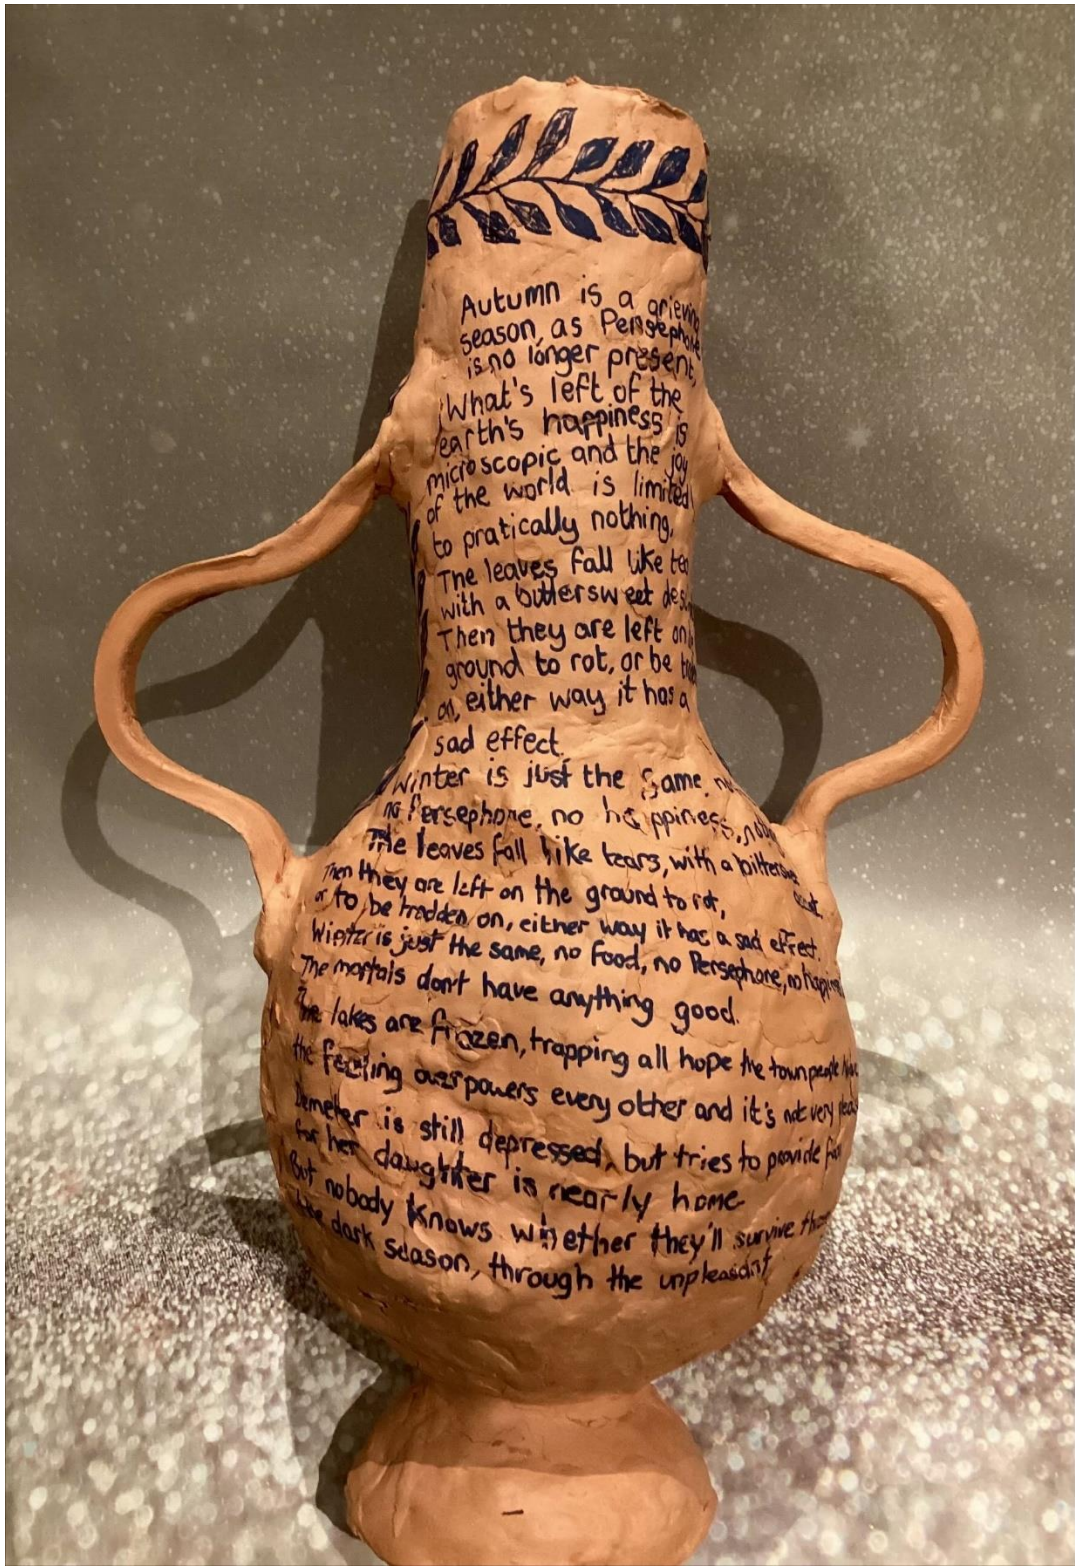 Autumn is a grieving
season, as Persephone
is no longer present,
What's left of the
earth's happiness is
microscopic and the joy
of the world is limited
to pratically nothing,
The leaves fall like
with a bittersweet
Then they are left on
ground to rot, or be
on, either way it has a
sad effect.
Winter is just the same,
no Persephone, no happiness,
The leaves fall like tears, with a
Then they are left on the ground to rot,
or to be trodden on, either way it has a sad effect.
Winter is just the same, no food, no Persephone, no
The mortals don't have anything good.
The lakes are frozen, trapping all hope the townpeople
the feeling overpowers every other and it's not very
Demeter is still depressed, but tries to provide
for her daughter is nearly home
But nobody knows whether they'll survive
the dark season, through the unpleasant